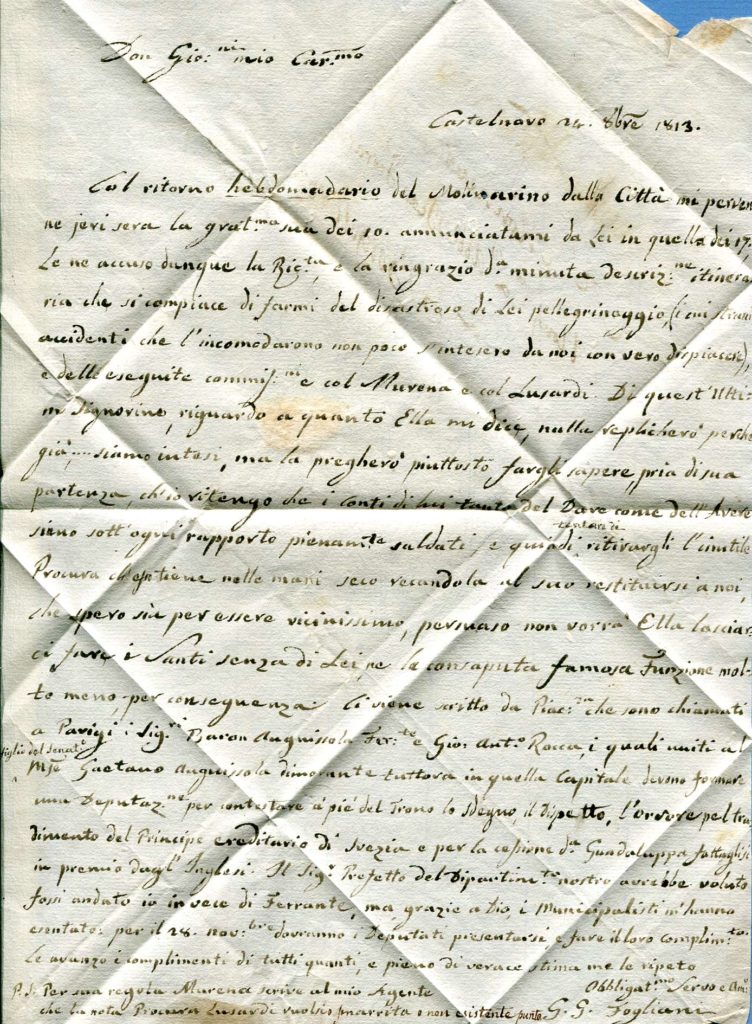 Don Gio:ni mio Carmo
Castelnovo 24. 8bre 1813.
Col ritorno hebdomadario del Molinarino dalla Città mi perven
ne jeri sera la grat:ma sua dei 10. annunciatami da Lei in quella dei 17.
Le ne accuso dunque la Ric:ta, e la ringrazio d:a minuta descriz:ne itinera
ria che si compiace di farmi del disastroso di Lei pellegrinaggio, (i cui strani
accidenti che l'incomodarono non poco s'intesero da noi con vero dispiacere),
e delle eseguite commis:ni e col Murena e col Lusardi. Di quest'Ulti-
mi Signorino, riguardo a quanto Ella mi dice, nulla replicherò perchè
già,.... siamo intesi, ma la pregherò piuttosto fargli sapere, pria di sua
partenza, ch'io ritengo che i Conti di lui tanto del Dare come dell'Avere
sieno sott'ogni rapporto pienamte saldati, e quindi tentare di ritirargli l'inutile
Procura ch'esso tiene nelle mani seco recandola al suo restituirsi a noi,
che spero sia per essere vicinissimo, persuaso non vorrà Ella lasciar
ci fare i Santi senza di Lei, ne la consaputa famosa Funzione mol-
to meno per conseguenza. Ci viene scritto da Piac:za che sono chiamati
a Parigi i Sig:ri Baron Anguissola Fer:te e Gio: Ant:o Rocca, i quali uniti al
figlio del Senat:e
Mse Gaetano Anguissola dimorante tuttora in quella Capitale devono formare
una Deputaz:ne per contestare a' piè del Trono lo Sdegno, il Dispetto, l'orrore pel tra
dimento del Principe ereditario di Svezia e per la cessione d:a Guadaluppa fattagli si
in premio dagl'Inglesi. Il Sig:r Prefetto del Dipartim:to nostro avrebbe voluto
fossi andato io invece di Ferrante, ma, grazie a Dio, i Municipalisti m'hanno
esentato: per il 28. nov:bre dovranno i Deputati presentarsi e fare il loro complim:to.
Le avanzo i complimenti di tutti quanti, e pieno di verace stima me le ripeto
Obbligat:mo Servo e Am:o
P.S. Per sua regola Murena scrive al mio Agente
che la nota Procura Lusardi vuolsi smarrita o non esistente punto. G. G. Fogliani